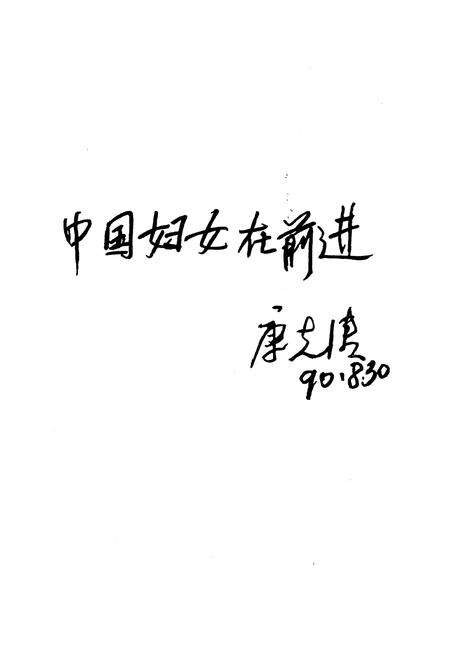 中国妇女在前进
康克清
90.8.30